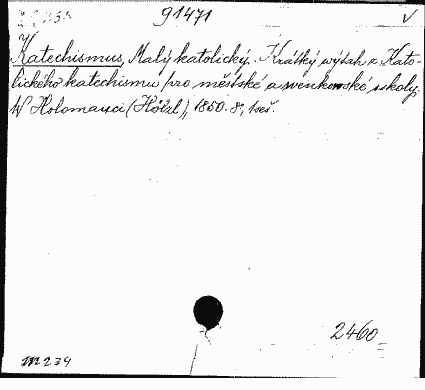 91471 V
Katechismus, Malý katolický. Krátký výtah z Kato-
lického katechismu pro městské a wenkowské sskoly.
W Holomauci (Hölzl), 1850. 8°, 1 seš.
2460
m 234